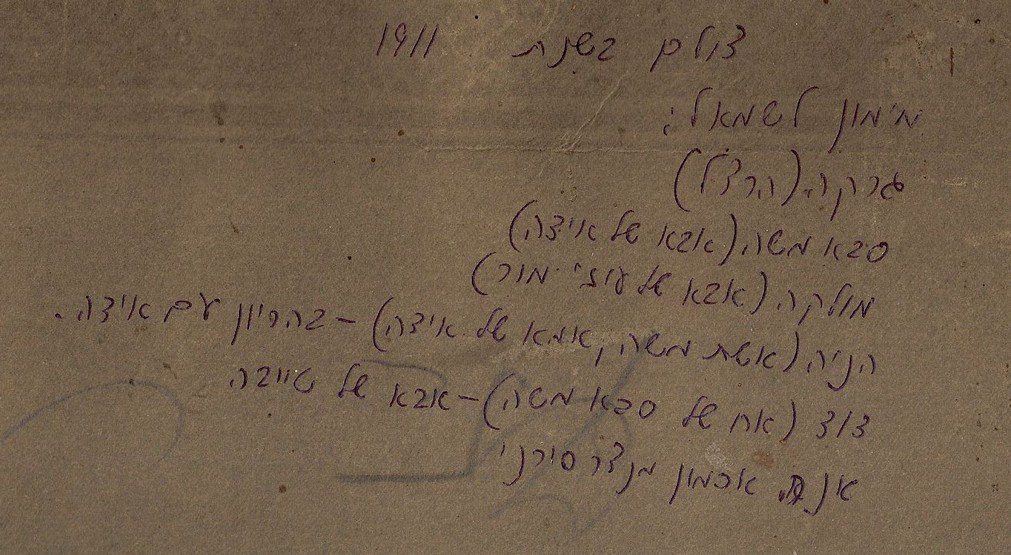 צולם בשנת 1911
מימון לשמאל:
(הרצל)
סבא משה (אבא של איצה)
מולקה (אבא של עוזי מור)
הניה (אשת משה, אמא של איצה) – בהריון עם איצה.
(אח של סבא משה) – אבא של טייבה
ארמון מנצר סירני